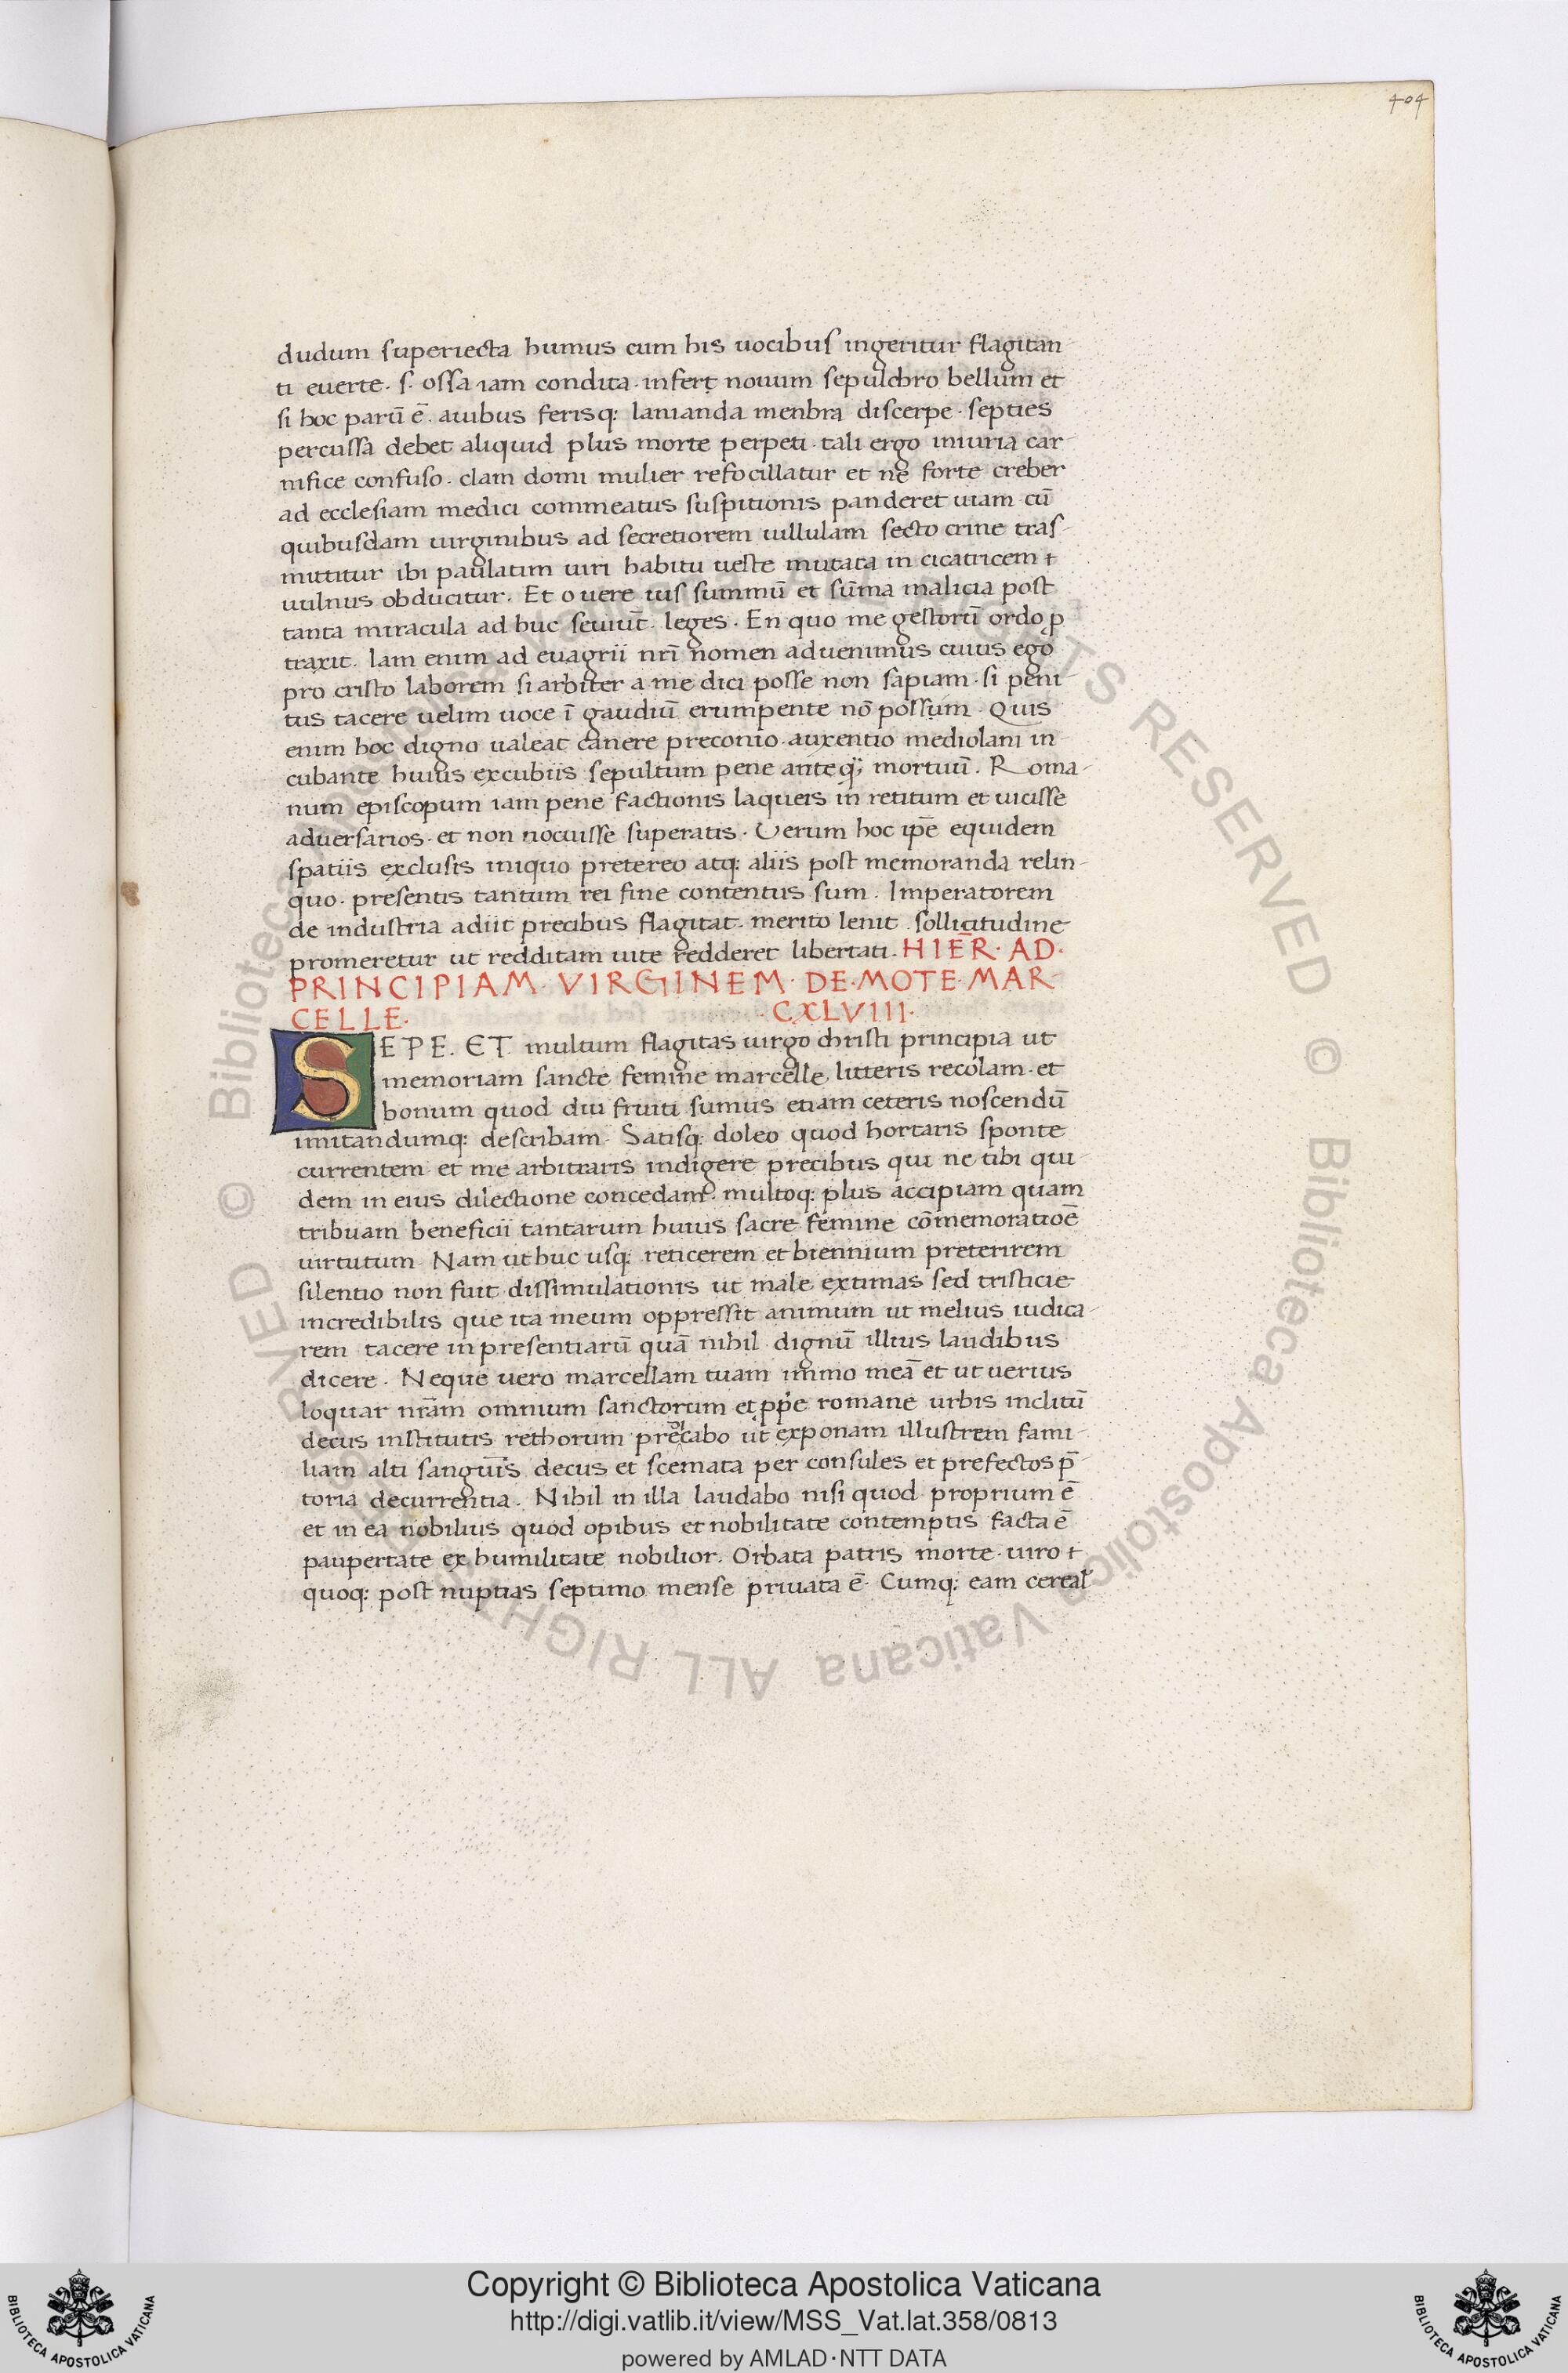 404
dudum superiecta humus cum his uocibus ingeritur flagitan
ti euerte. s. ossa iam condita. infert nouum sepulchro bellum et
si hoc parū ē. auibus ferisq: lanianda menbra discerpe. septies
percussa debet aliquid plus morte perpeti. tali ergo iniuria car-
nifice confuso. clam domi mulier refocillatur et ne forte creber
ad ecclesiam medici commeatus suspitionis panderet uiam cū
quibusdam uirginibus ad secretiorem uillulam secto crine tras-
mittitur ibi paulatim uiri habitu ueste mutata in cicatricem &
uulnus obducitur. Et o uere ius summū et sūma malicia post
tanta miracula ad huc seuiūt. leges. En quo me gestorū ordo p
traxit. Iam enim ad euagrii nr̄i nomen aduenimus cuius ego
pro cristo laborem si arbiter a me dici posse non sapiam. si peni-
tus tacere uelim uoce ī gaudiū erumpente nō possum. Quis
enim hoc digno ualeat canere preconio. auxentio mediolani in-
cubante huius excubiis sepultum pene anteq; mortuū. Roma-
num episcopum iam pene factionis laqueis in retitum et uicisse
aduersarios. et non nocuisse superatis. Uerum hoc ip̄e equidem
spatiis exclusis iniquo pretereo atq: aliis post memoranda relin-
quo. presentis tantum rei fine contentus sum. Imperatorem
de industria adiit precibus flagitat. merito lenit. sollicitudine
promeretur ut redditam uite redderet libertati. HIER̄. AD.
PRINCIPIAM. VIRGINEM. DE. MOTE. MAR-
CELLE. .CXLVIII.
SEPE. ET multum flagitas uirgo christi principia ut
memoriam sancte femine marcelle litteris recolam. et
bonum quod diu fruiti sumus etiam ceteris noscendū
imitandumq: describam. Satisq: doleo quod hortaris sponte
currentem et me arbitraris indigere precibus qui ne tibi qui-
dem in eius dilectione concedam. multoq: plus accipiam quam
tribuam beneficii tantarum huius sacre femine cōmemoratioē
uirtutum Nam ut huc usq: reticerem et biennium preterirem
silentio non fuit dissimulationis ut male extimas sed tristicie
incredibilis que ita meum oppressit animum ut melius iudica-
rem tacere in presentiarū quā nihil dignū illius laudibus
dicere. Neque uero marcellam tuam immo meā et ut uerius
loquar nr̄am omnium sanctorum et ppr̄e romane urbis inclitū
decus institutis rethorum predicabo ut exponam illustrem fami-
liam alti sanguīs decus et scemata per consules et prefectos p̄-
toria decurrentia. Nihil in illa laudabo nisi quod proprium ē
et in ea nobilius quod opibus et nobilitate contemptis facta ē
paupertate ex humilitate nobilior. Orbata patris morte. uiro &
quoq: post nuptias septimo mense priuata ē. Cumq: eam cereal
Copyright © Biblioteca Apostolica Vaticana
http://digi.vatlib.it/view/MSS_Vat.lat.358/0813
powered by AMLAD·NTT DATA